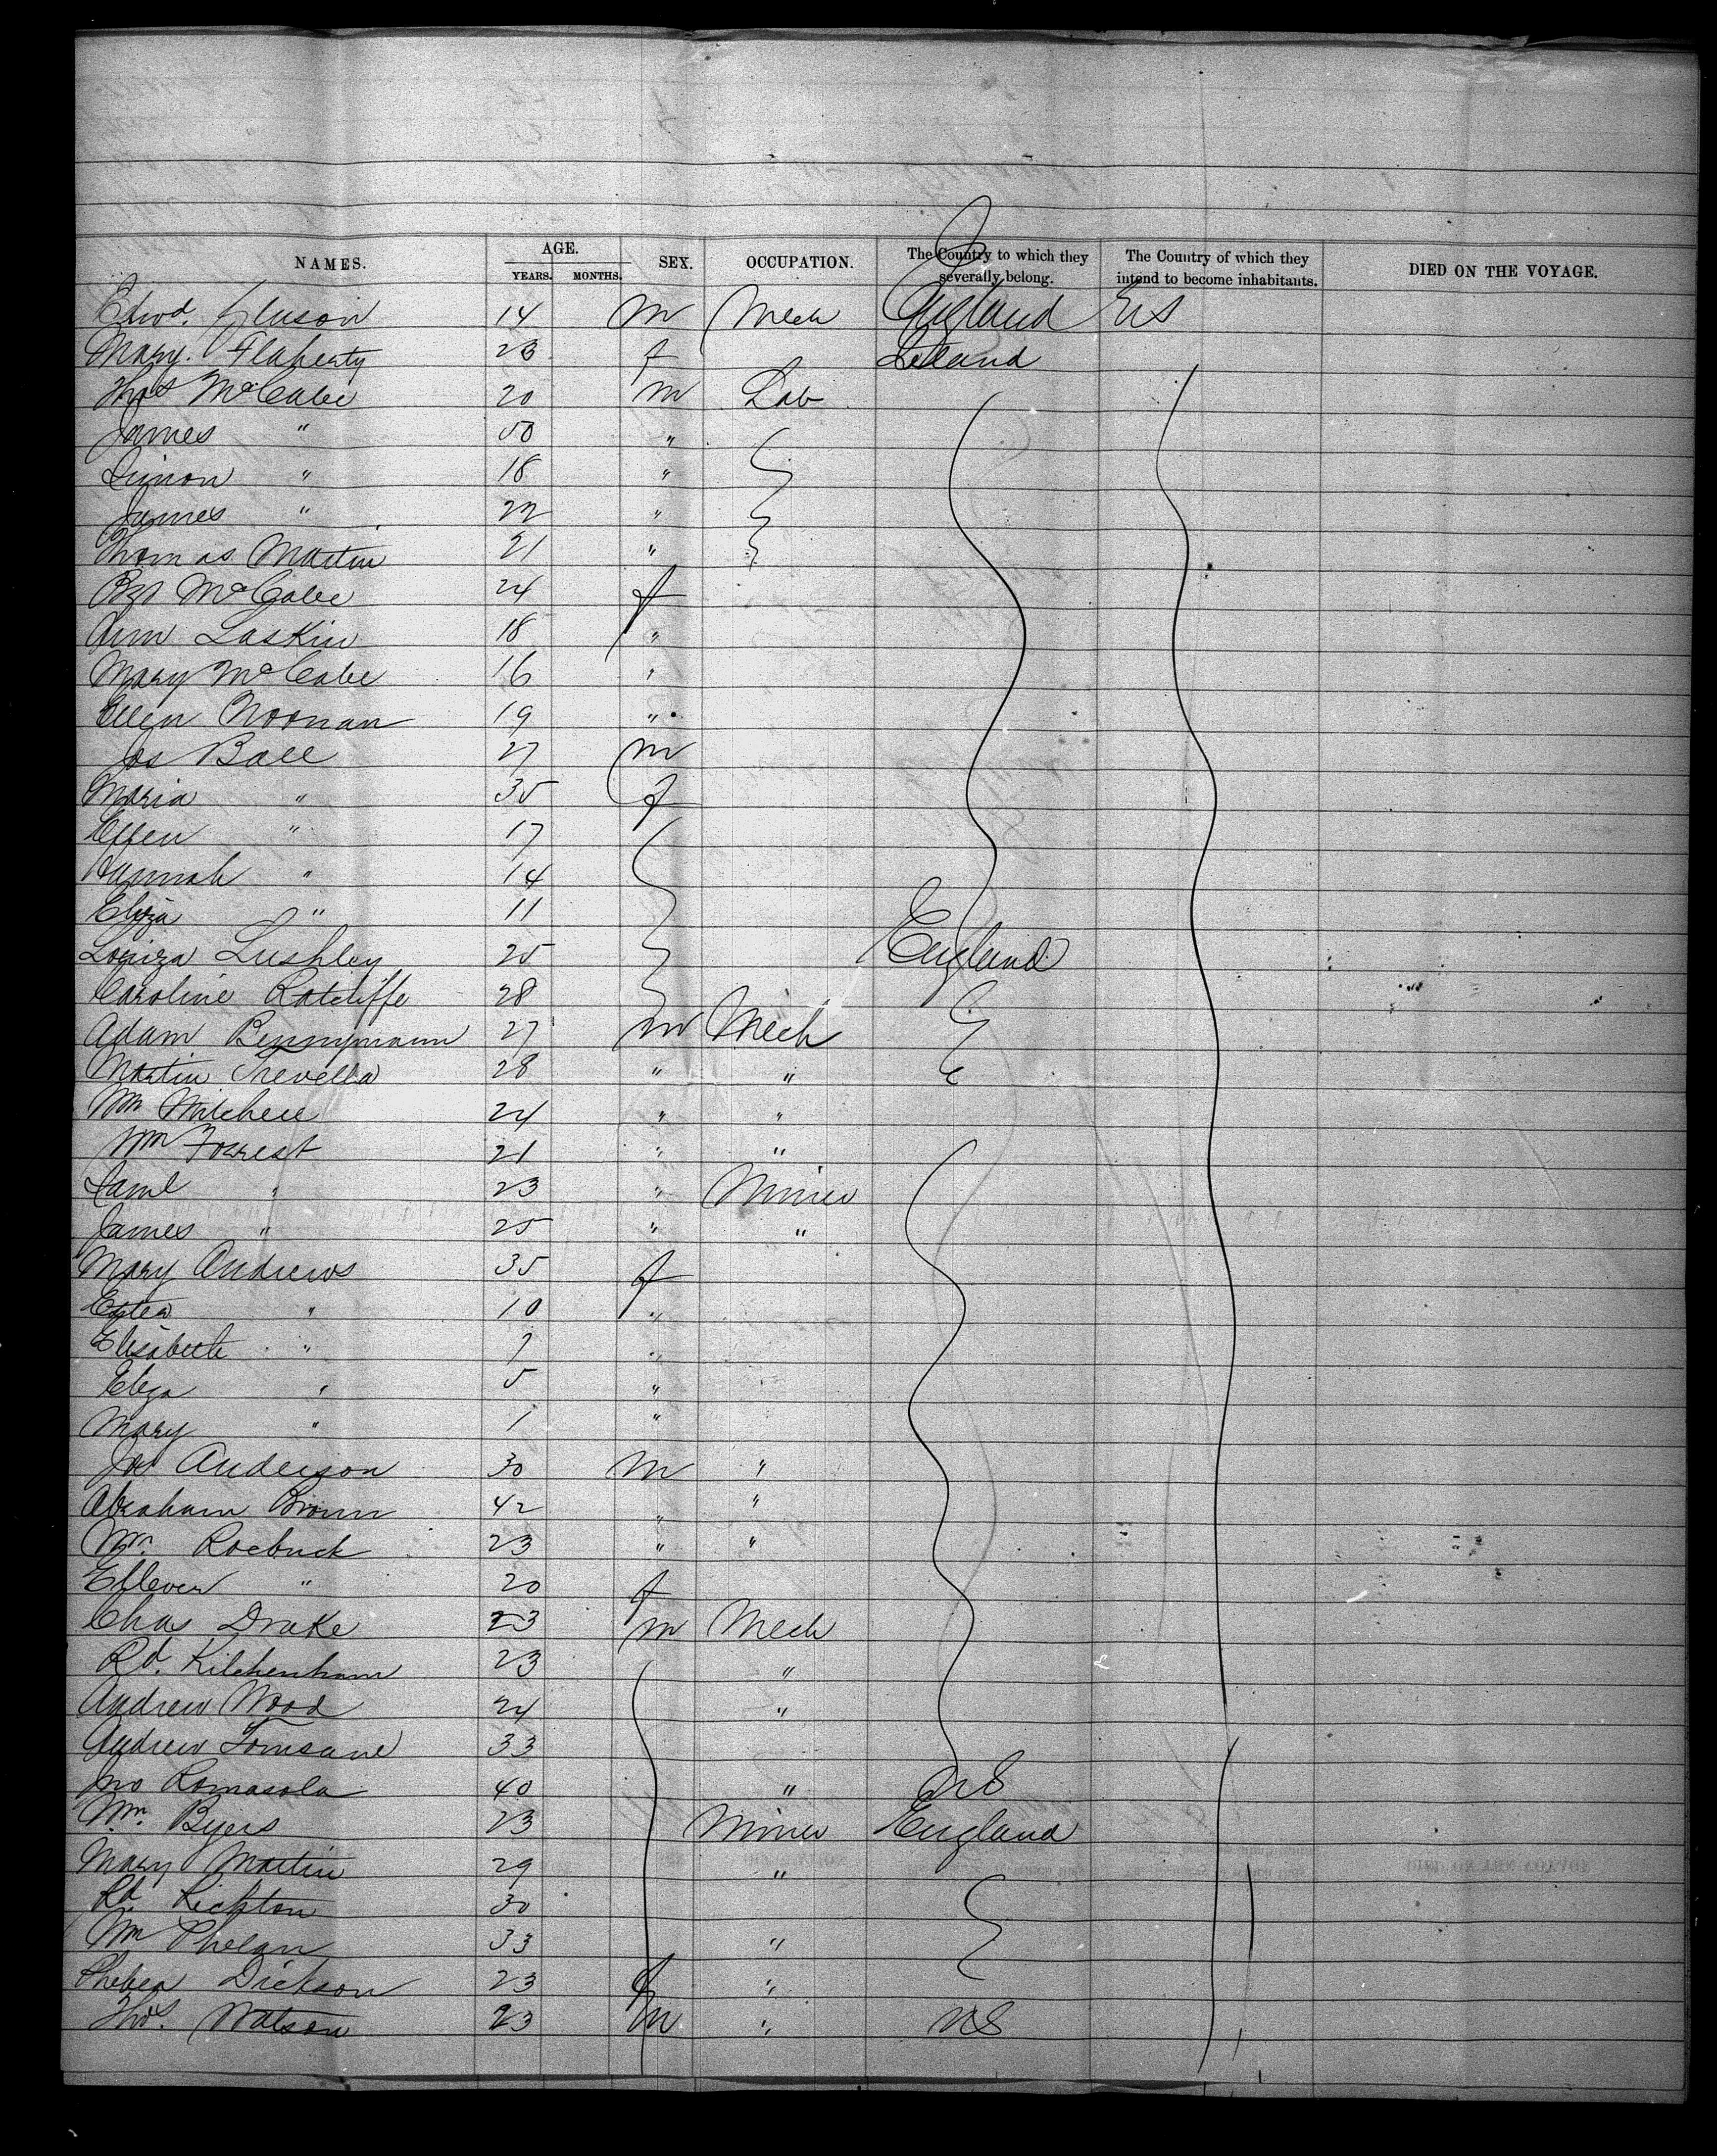 NAMES. AGE. YEARS. MONTHS. SEX. OCCUPATION. The Country to which they severally belong. The Country of which they intend to become inhabitants. DIED ON THE VOYAGE.
Edwd. 14 m Mech England US
Mary Flaherty 23 f Ireland
Thos McCabe 20 m Lab
James " 50 "
Simon " 18 "
James " 22 "
Thomas Martin 21 "
Bgt McCabe 24 f
Ann Laskin 18 "
Mary McCabe 16 "
Ellen Noonan 19 "
Jas Ball 27 m
Maria " 35 f
Ellen " 17
Hannah " 14
Eliza " 11
Louiza Lushley 25 England
Caroline Ratcliffe 28
Adam 27 m Mech
Martin Trevella 28 " "
Wm Mitchell 24 " "
Wm Forrest 21 " "
Saml " 23 " Miner
James " 25 " "
Mary Andrews 35 f
Ester " 10 "
Elisabeth " 7 "
Eliza " 5 "
Mary " 1 "
Jas Anderson 30 m "
Abraham Brown 42 " "
Wm. Roebuck 23 " "
Elleven " 20 f
Chas Drake 23 m Mech
Rd. Kitchenham 23 "
Andrew Wood 24 "
Andrew Tomsane 33
Jno Romasola 40 " US
Wm. Byers 23 Miner England
Mary Martin 29 "
Rd. Rickton 30
Wm Phelan 33 "
Pheben Dickson 23 f "
Thos. Watson 23 m " US